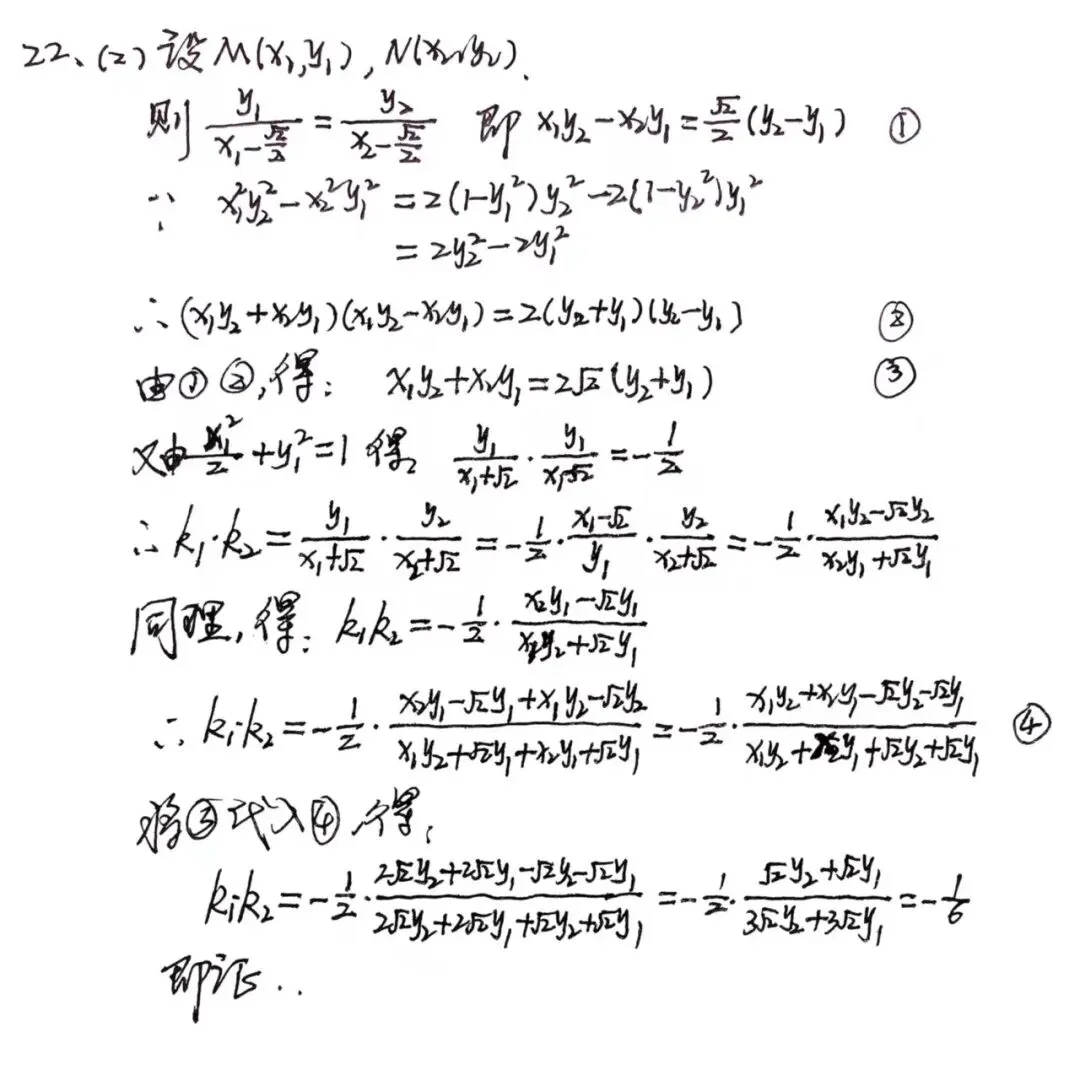 22、(2) 设 M(x₁,y₁), N(x₂,y₂).
则 y₁/(x₁-√2/2) = y₂/(x₂-√2/2) 即 x₁y₂-x₂y₁=√2/2(y₂-y₁) ①
∵ x₁²y₂²-x₂²y₁² = 2(1-y₁²)y₂²-2(1-y₂²)y₁²
= 2y₂²-2y₁²
∴ (x₁y₂+x₂y₁)(x₁y₂-x₂y₁)=2(y₂+y₁)(y₂-y₁) ②
由①②,得: x₁y₂+x₂y₁=2√2(y₂+y₁) ③
又由 x₁²/2+y₁²=1 得, y₁/(x₁+√2)·y₁/(x₁-√2)=-1/2
∴ k₁·k₂=y₁/(x₁+√2)·y₂/(x₂+√2)=-1/2·(x₁-√2)/y₁·y₂/(x₂+√2)=-1/2·(x₁y₂-√2y₂)/(x₂y₁+√2y₁)
同理,得: k₁k₂=-1/2·(x₂y₁-√2y₁)/(x₁y₂+√2y₁)
∴ k₁k₂=-1/2·(x₂y₁-√2y₁+x₁y₂-√2y₂)/(x₁y₂+√2y₁+x₂y₁+√2y₁)=-1/2·(x₁y₂+x₂y₁-√2y₂-√2y₁)/(x₁y₂+x₂y₁+√2y₂+√2y₁) ④
将③代入④,得:
k₁k₂=-1/2·(2√2y₂+2√2y₁-√2y₂-√2y₁)/(2√2y₂+2√2y₁+√2y₂+√2y₁)=-1/2·(√2y₂+√2y₁)/(3√2y₂+3√2y₁)=-1/6
即证..